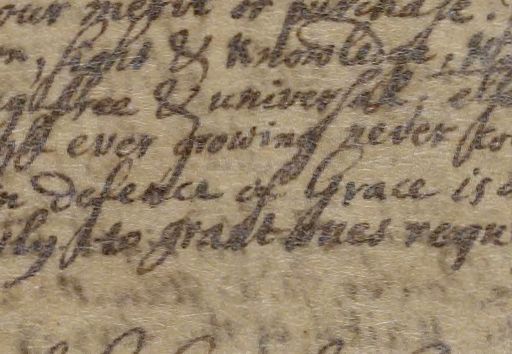 our merit or purchase.
light & Knowledge,
free & universall.
ever growing never
defence of Grace is
to grant ones requ